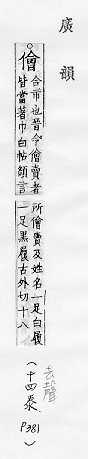 廣韻
儈
合市也晉令儈賣者
皆當著巾白帖額言
所儈賣及姓名一足白履
一足黑履古外切十八
去聲
(十四泰 P381)